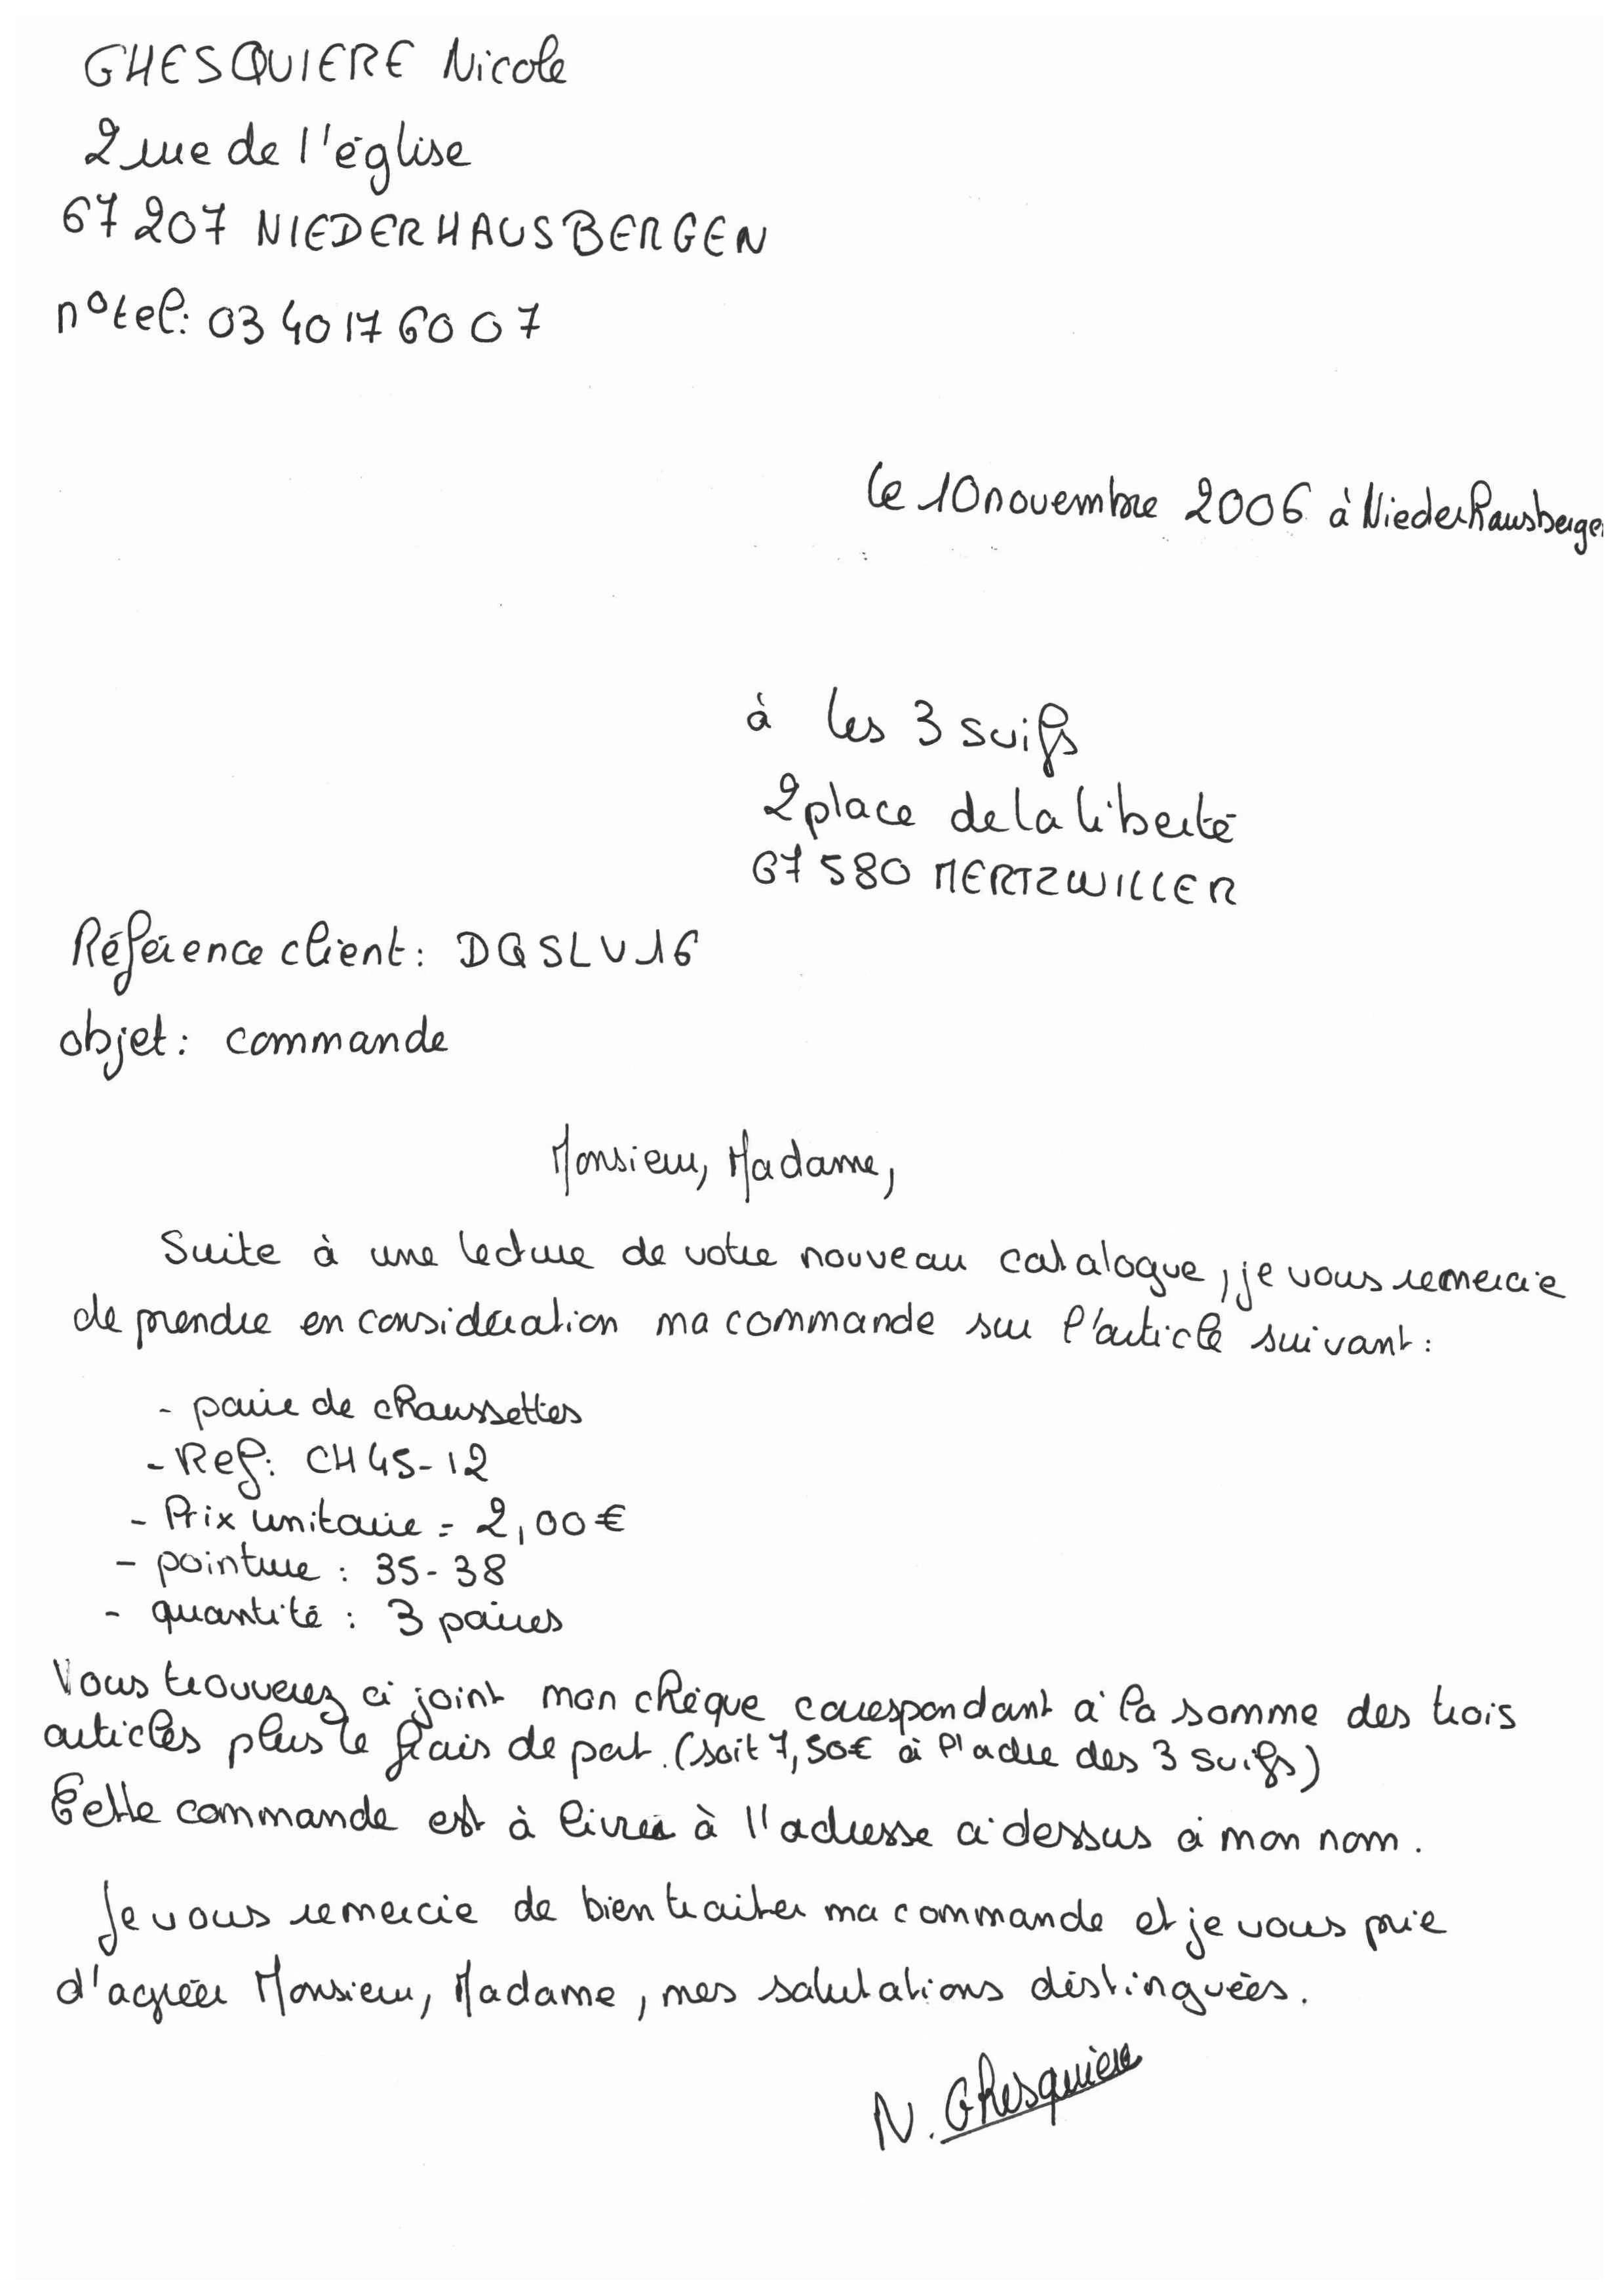 GHESQUIERE Nicole
2 rue de l'église
67 207 NIEDERHAUSBERGEN
n° tel: 03 40 17 60 07
le 10 novembre 2006 à Niederhausbergen
à les 3 suifs
2 place de la liberté
67 580 MERTZWILLER
Référence client: DQSLV16
objet: commande
Monsieur, Madame,
Suite à une lecture de votre nouveau catalogue, je vous remercie
de prendre en considération ma commande sur l'article suivant:
- paire de chaussettes
- Ref: CH45-12
- Prix unitaire = 2,00€
- pointure : 35-38
- quantité : 3 paires
Vous trouverez ci joint mon chèque correspondant à la somme des trois
articles plus le frais de port. (soit 7,50€ à l'adre des 3 suifs)
Cette commande est à livrer à l'adresse ci dessus à mon nom.
Je vous remercie de bien traiter ma commande et je vous prie
d'agréer Monsieur, Madame, mes salutations distinguées.
N. Ghesquiere